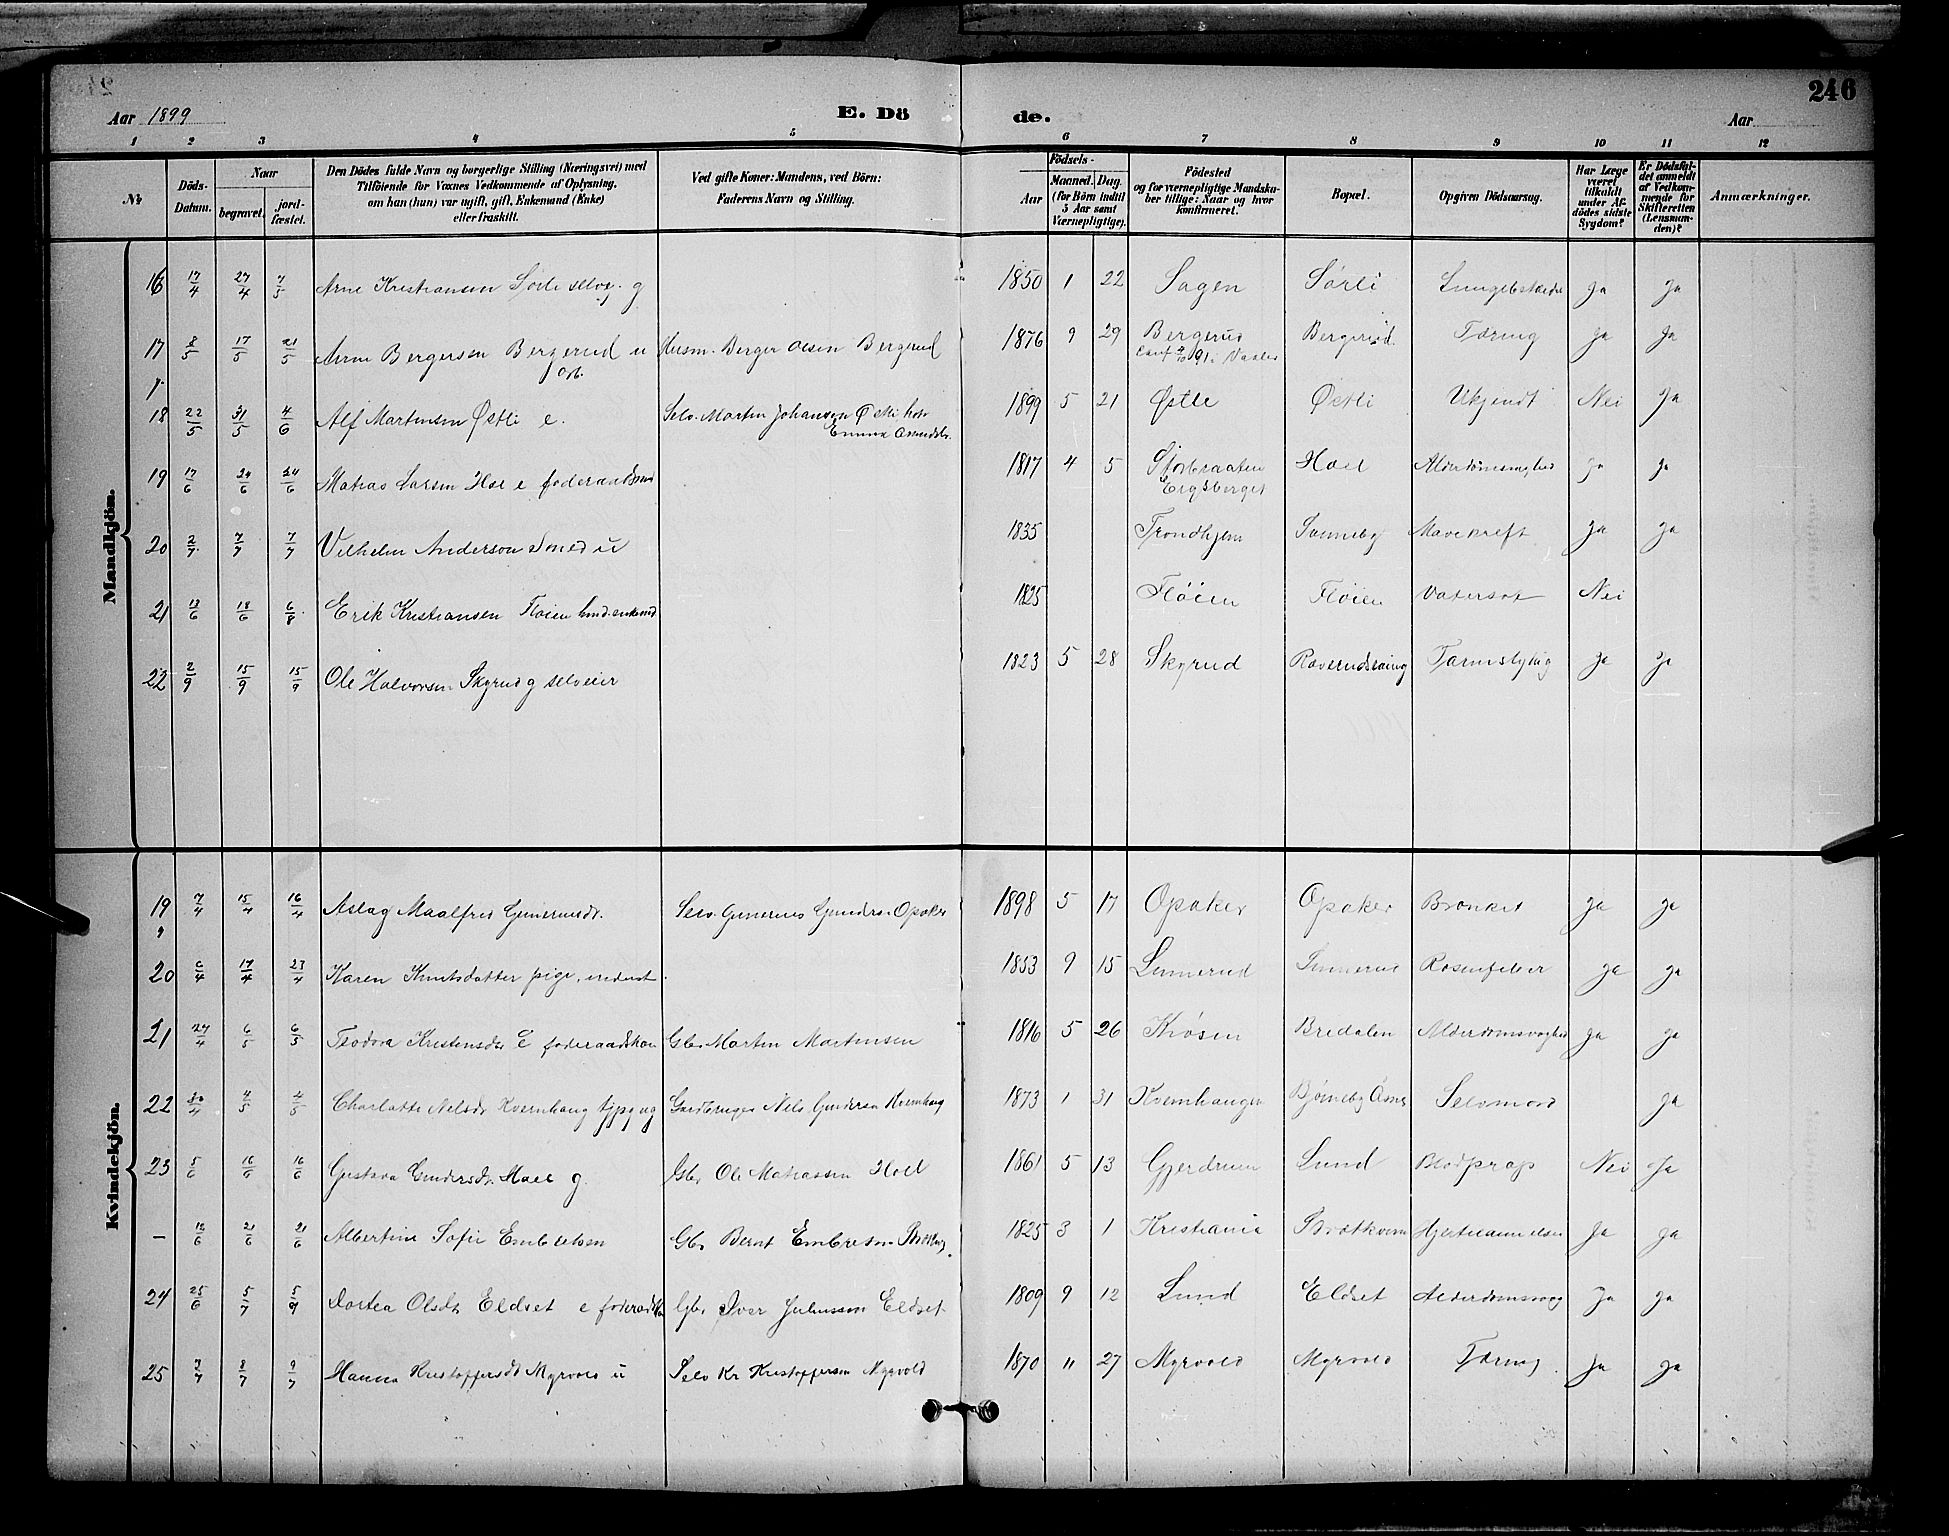 246
Aar 1899
E. Dö
de.
Aar
1 2 3 4 5 6 7 8 9 10 11 12
№
Döds-Datum.
Naar
begravet.
jord-fæstet.
Den Dödes fulde Navn og borgerlige Stilling (Næringsvei) med
Tilföiende for Voxnes Vedkommende af Oplysning,
om han (hun) var ugift, gift, Enkemand (Enke)
eller fraskilt.
Ved gifte Koner: Mandens, ved Börn:
Faderens Navn og Stilling.
Födsels-
Aar
Maaned. Dag.
(for Börn indtil
5 Aar samt
Værnepligtige).
Födested
og for værnepligtige Mandskaber tillige: Naar og hvor
konfirmeret.
Bopæl.
Opgiven Dödsaarsag.
Har Læge
været
tilkaldt
under Afdödes sidste
Sygdom?
Er Dödsfaldet anmeldt
af Vedkommende for
Skifteretten
(Lensmanden)?
Anmærkninger.
Mandkjön.
16 17/4 27/4 7/5 Arne Kristiansen Sörli selvg. g 1850 1 22 Sagen Sørli Ja Ja
17 8/5 17/5 21/5 Arne Bergersen Bergerud u Husm. Berger Olsen Bergerud 1876 9 29 Bergerud Bergerud Tæring Ja Ja
18 22/5 31/5 4/6 Alf Martinsen Østli e. Selv. Martin Johansen Østli hstr 1899 5 21 Østli Østli Ukjendt Nei Ja
19 17/6 24/6 24/6 Matias Larsen Hoel e foderaadsmd 1817 4 5 Hoel Alderdomssvaghed Ja Ja
20 2/7 7/7 7/7 Vilhelm Anderson Smed u 1835 Trondhjem Sanneby Mavekræft Ja Ja
21 13/6 18/6 6/8 Erik Kristiansen Fløien 1825 Fløien Fløien Vatersot Nei
22 2/9 15/9 15/9 Ole Halvorsen Skyrud g selveier 1823 5 28 Skyrud Ja Ja
Kvindekjön.
19 7/4 15/4 16/4 Aslag Maalfrid Gunerusdr. Selv. Gunerus Gunders. Opaker 1898 5 17 Opaker Opaker Bronkit Ja Ja
20 6/4 17/4 23/4 Karen Knutsdatter pige, 1853 9 15 Linnerud Linnerud Rosenfeber Ja Ja
21 27/4 6/5 6/5 Teodora Kristensdr E foderaadskone Gbr. Martin Martinsen 1816 5 26 Bredalen Alderdomssvaghed Ja Ja
22 30/4 4/5 4/5 Charlotte Nilsdr Kvernhaug tjpg ug Gardbruger Nils Gundersn Kvernhaug 1873 1 31 Kvernhaugen Bjørneby Selvmord Ja
23 5/6 16/6 16/6 Gustava Gundersdr. Hoel g. Gbr Ole Matiassen Hoel 1861 5 13 Gjerdrum Lund Blodprop Nei Ja
– 12/6 21/6 21/6 Albertine Sofie Embretsen Gbr Bernt Embretsn. 1825 3 1 Kristiania Ja Ja
24 25/6 5/7 5/9 Dortea Olsdr Eldset e Gbr Iver Juliussen Eldset 1809 9 12 Lund Eldset Alderdomssvag Ja Ja
25 8/7 9/7 Hanna Kristoffersdr Myrvold u Selv Kr Kristoffersen Myrvold 1870 11 27 Myrvold Myrvold Tæring Ja Ja